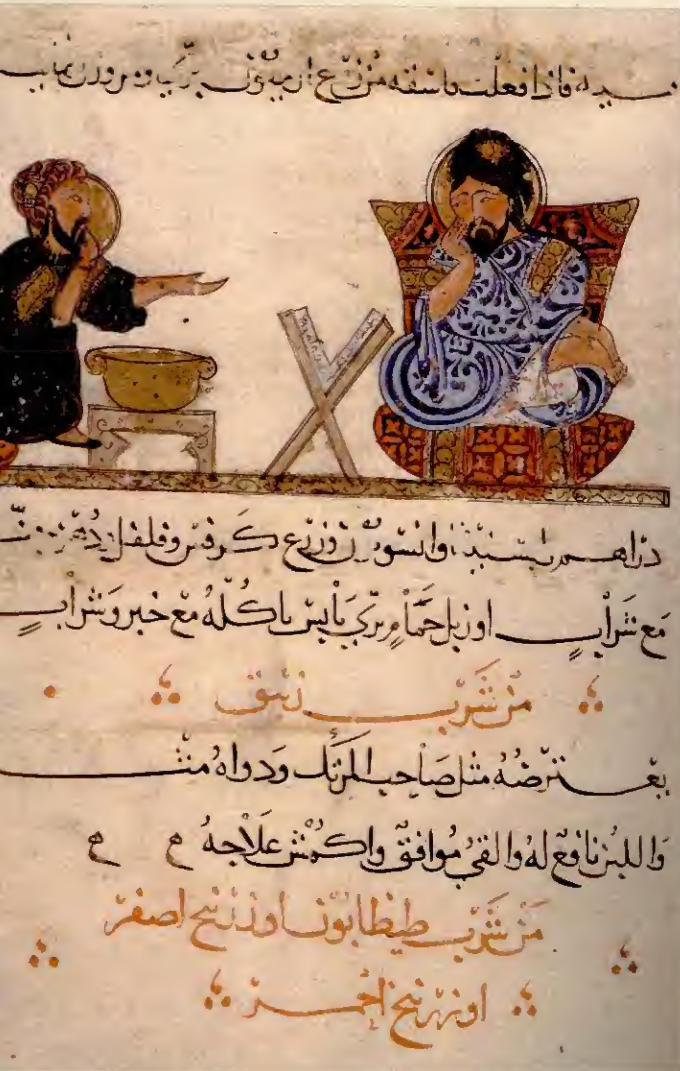 فاذا فعلت فاسقه من زرع
دراهم بابسنتين وانسون وزرع كرفس وفلفل
مع شراب او زبل حمام بري يابس ياكله مع خبز وشراب
من شرب زيبق
يعترضه مثل صاحب المرتك ودواه مثل
واللبن نافع له والقي موافق واكمش علاجه
من شرب اوزرنيخ اصفر
او زرنيخ احمر